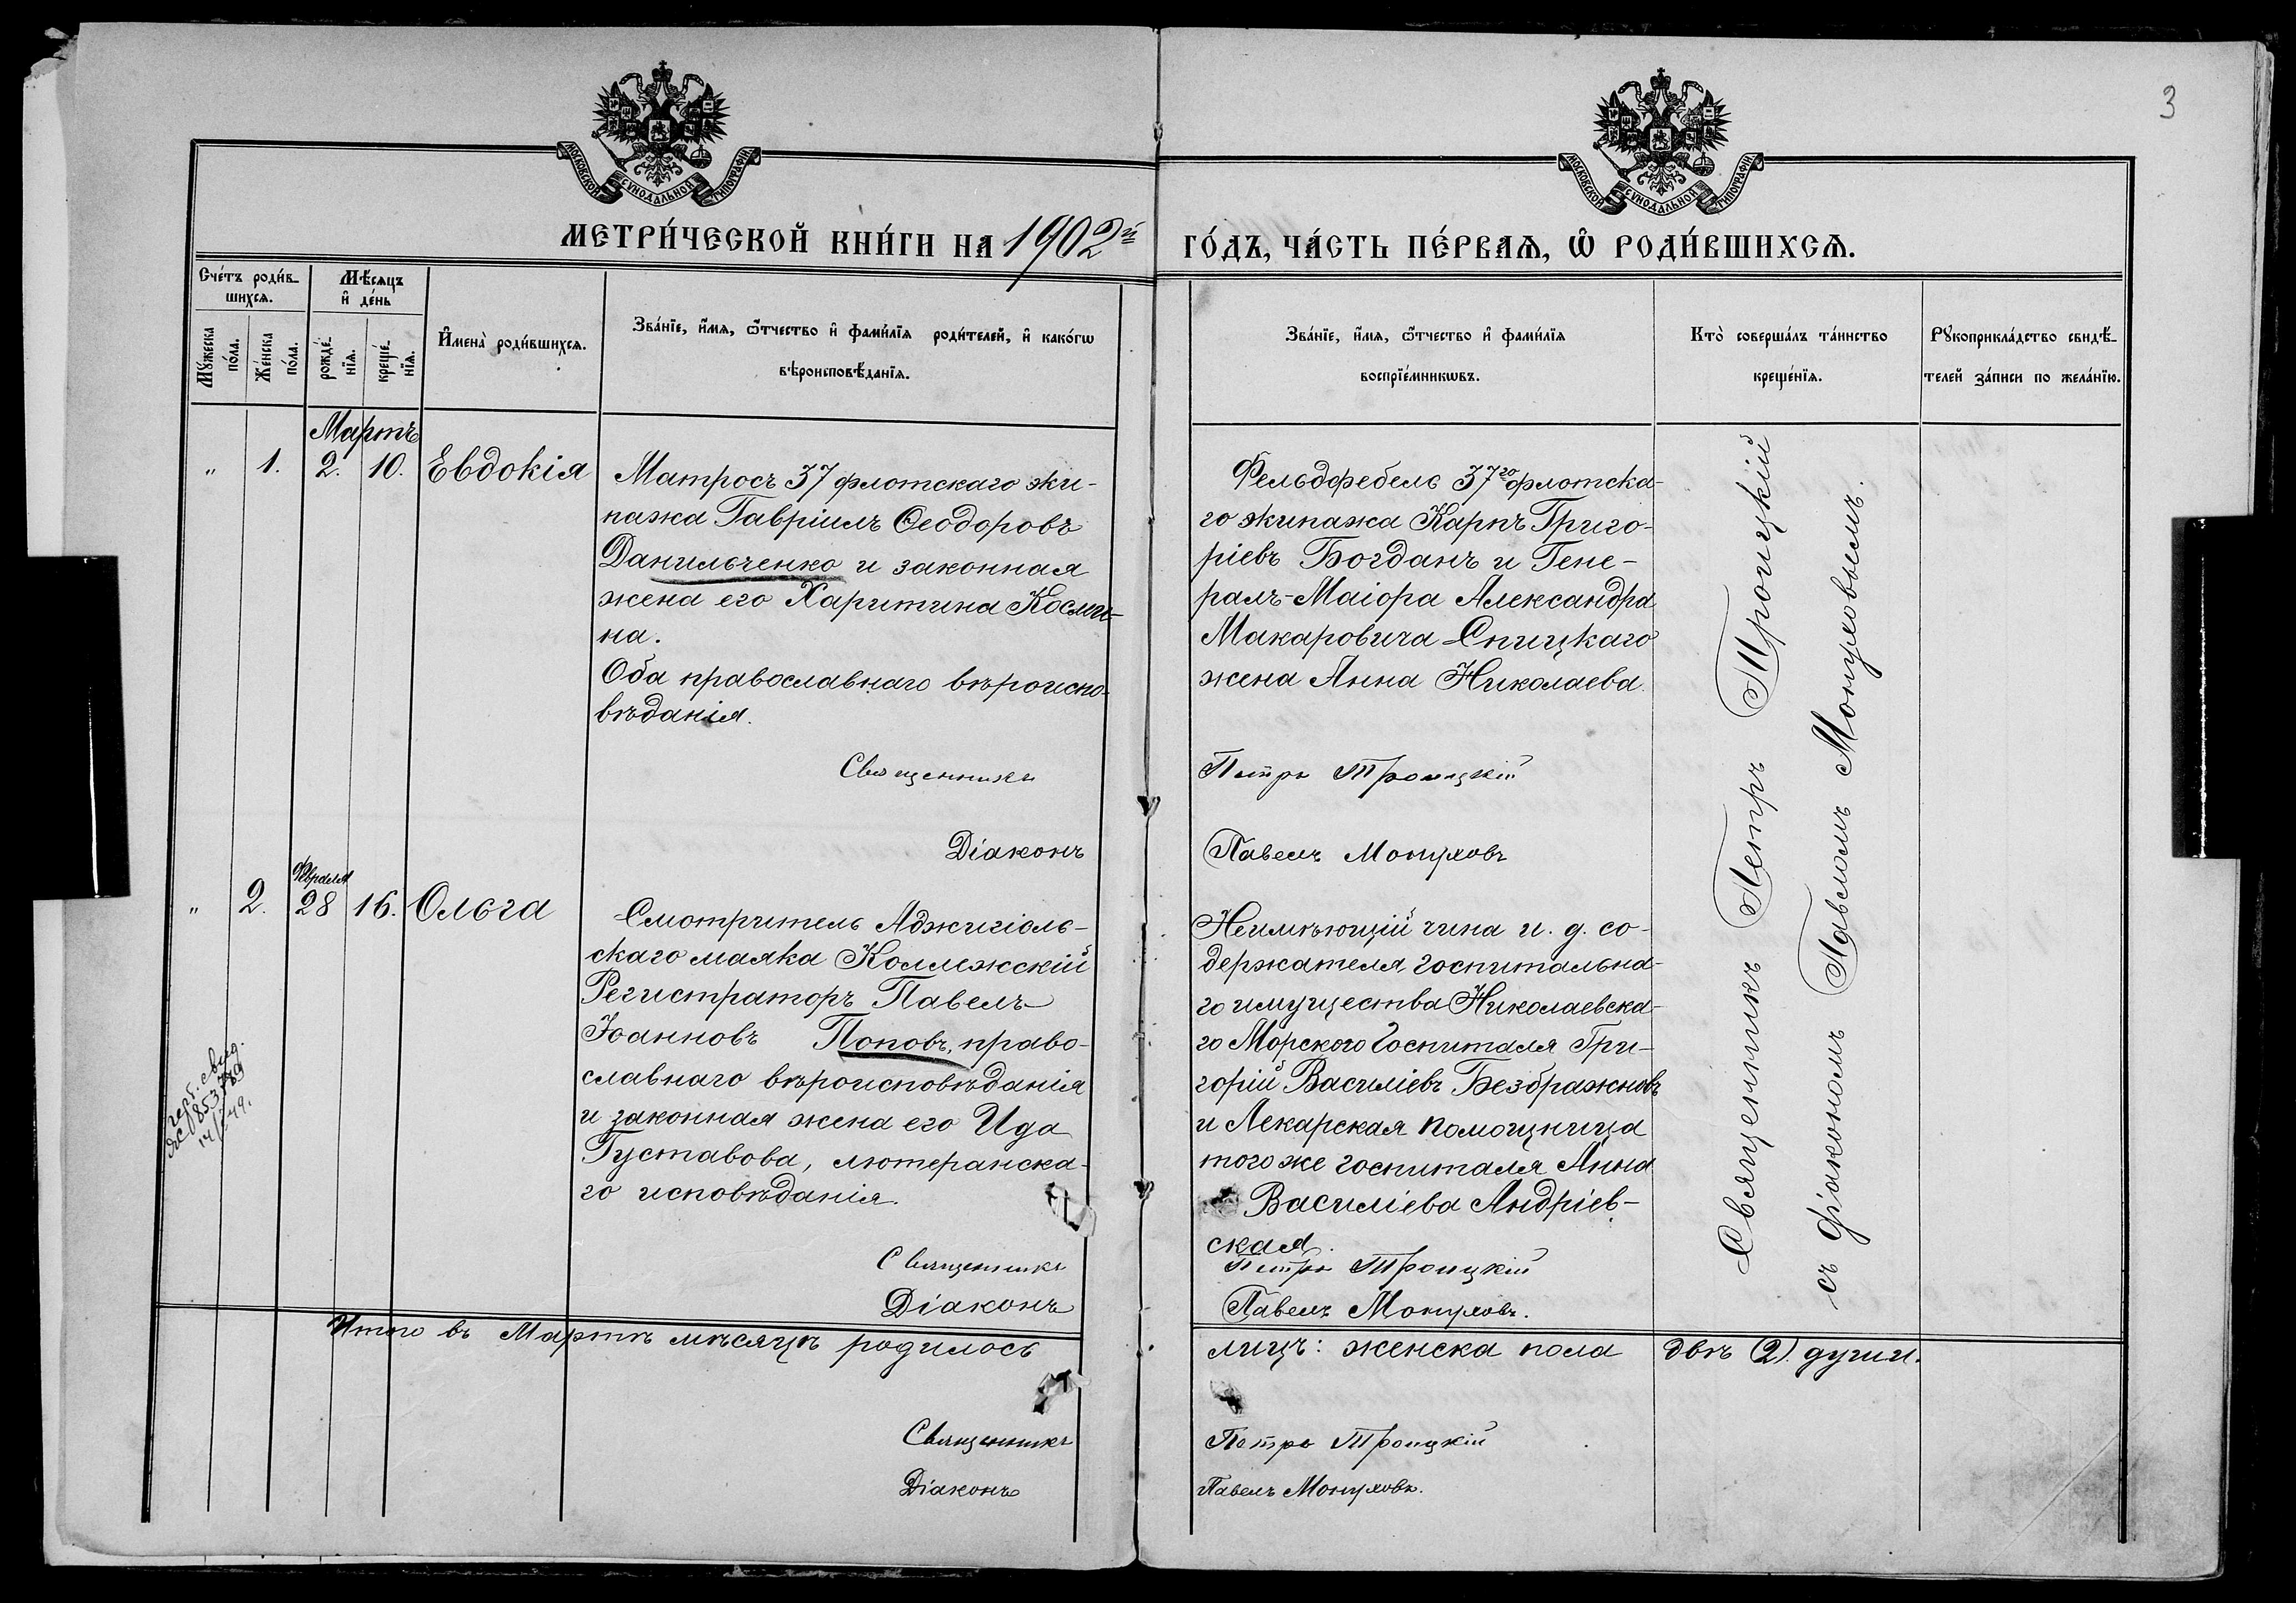 3
МОСКОВСКОЙ СУНОДАЛЬНОЙ ТИПОГРАФІИ
МОСКОВСКОЙ СУНОДАЛЬНОЙ ТИПОГРАФІИ
МЕТРИ́ЧЕСКОЙ КНИ́ГИ НА 1902й ГО́ДЪ, ЧА́СТЬ ПЕ́РВАѦ, Ѡ҆ РОДИ́ВШИХСѦ.
Сче́тъ роди́в-
шихсѧ.
Мꙋ́жеска по́ла.
Же́нска по́ла.
Мѣ́сяцъ
и҆ де́нь
рожде́-
нїѧ.
креще́-
нїѧ.
И҆мена̀ роди́вшихсѧ.
Зва́нїе, и҆́мѧ, ѻ҆́тчество и҆ фами́лїѧ роди́телей, и҆ како́гѡ
вѣроисповѣ́данїѧ.
Зва́нїе, и҆́мѧ, ѻ҆́тчество и҆ фами́лїѧ
воспрїе́мникѡвъ.
Кто̀ соверша́лъ та́инство
креще́нїѧ.
Рꙋкоприкла́дство свидѣ́-
телей за́писи по жела́нїю.
Мартъ
„ 1. 2. 10. Евдокія
Матросъ 37 флотскаго эки-
пажа Гавріилъ Ѳеодоровъ
Данильченко и законная
жена его Харитина Косми-
на.
Оба православнаго вѣроиспо-
вѣданія.
Священникъ
Діаконъ
Фельдфебель 37го флотска-
го экипажа Карпъ Григо-
ріевъ Богданъ и Гене-
ралъ-Маіора Александра
Макаровича Спицкаго
жена Анна Николаева.
Петръ Троицкій
Павелъ Монцховъ
Священникъ Петръ Троицкій
съ діакономъ Павломъ Монцховымъ.
Февраля
„ 2. 28 16. Ольга
Смотритель Аджигіоль-
скаго маяка Коллежскій
Регистраторъ Павелъ
Іоанновъ Поповъ, право-
славнаго вѣроисповѣданія
и законная жена его Ида
Густавова, лютеранска-
го исповѣданія.
Священникъ
Діаконъ
Неимѣющій чина и. д. со-
держателя госпитальна-
го имущества Николаевска-
го Морского Госпиталя Гри-
горій Василіевъ Безбражновъ
и Лекарская помощница
того же госпиталя Анна
Василіева Андріев-
ская.
Петръ Троицкій
Павелъ Монцховъ.
Итого въ Мартѣ мѣсяцѣ родилось лицъ: женска пола двѣ (2) души.
Священникъ
Діаконъ
Петръ Троицкій
Павелъ Монцховъ.